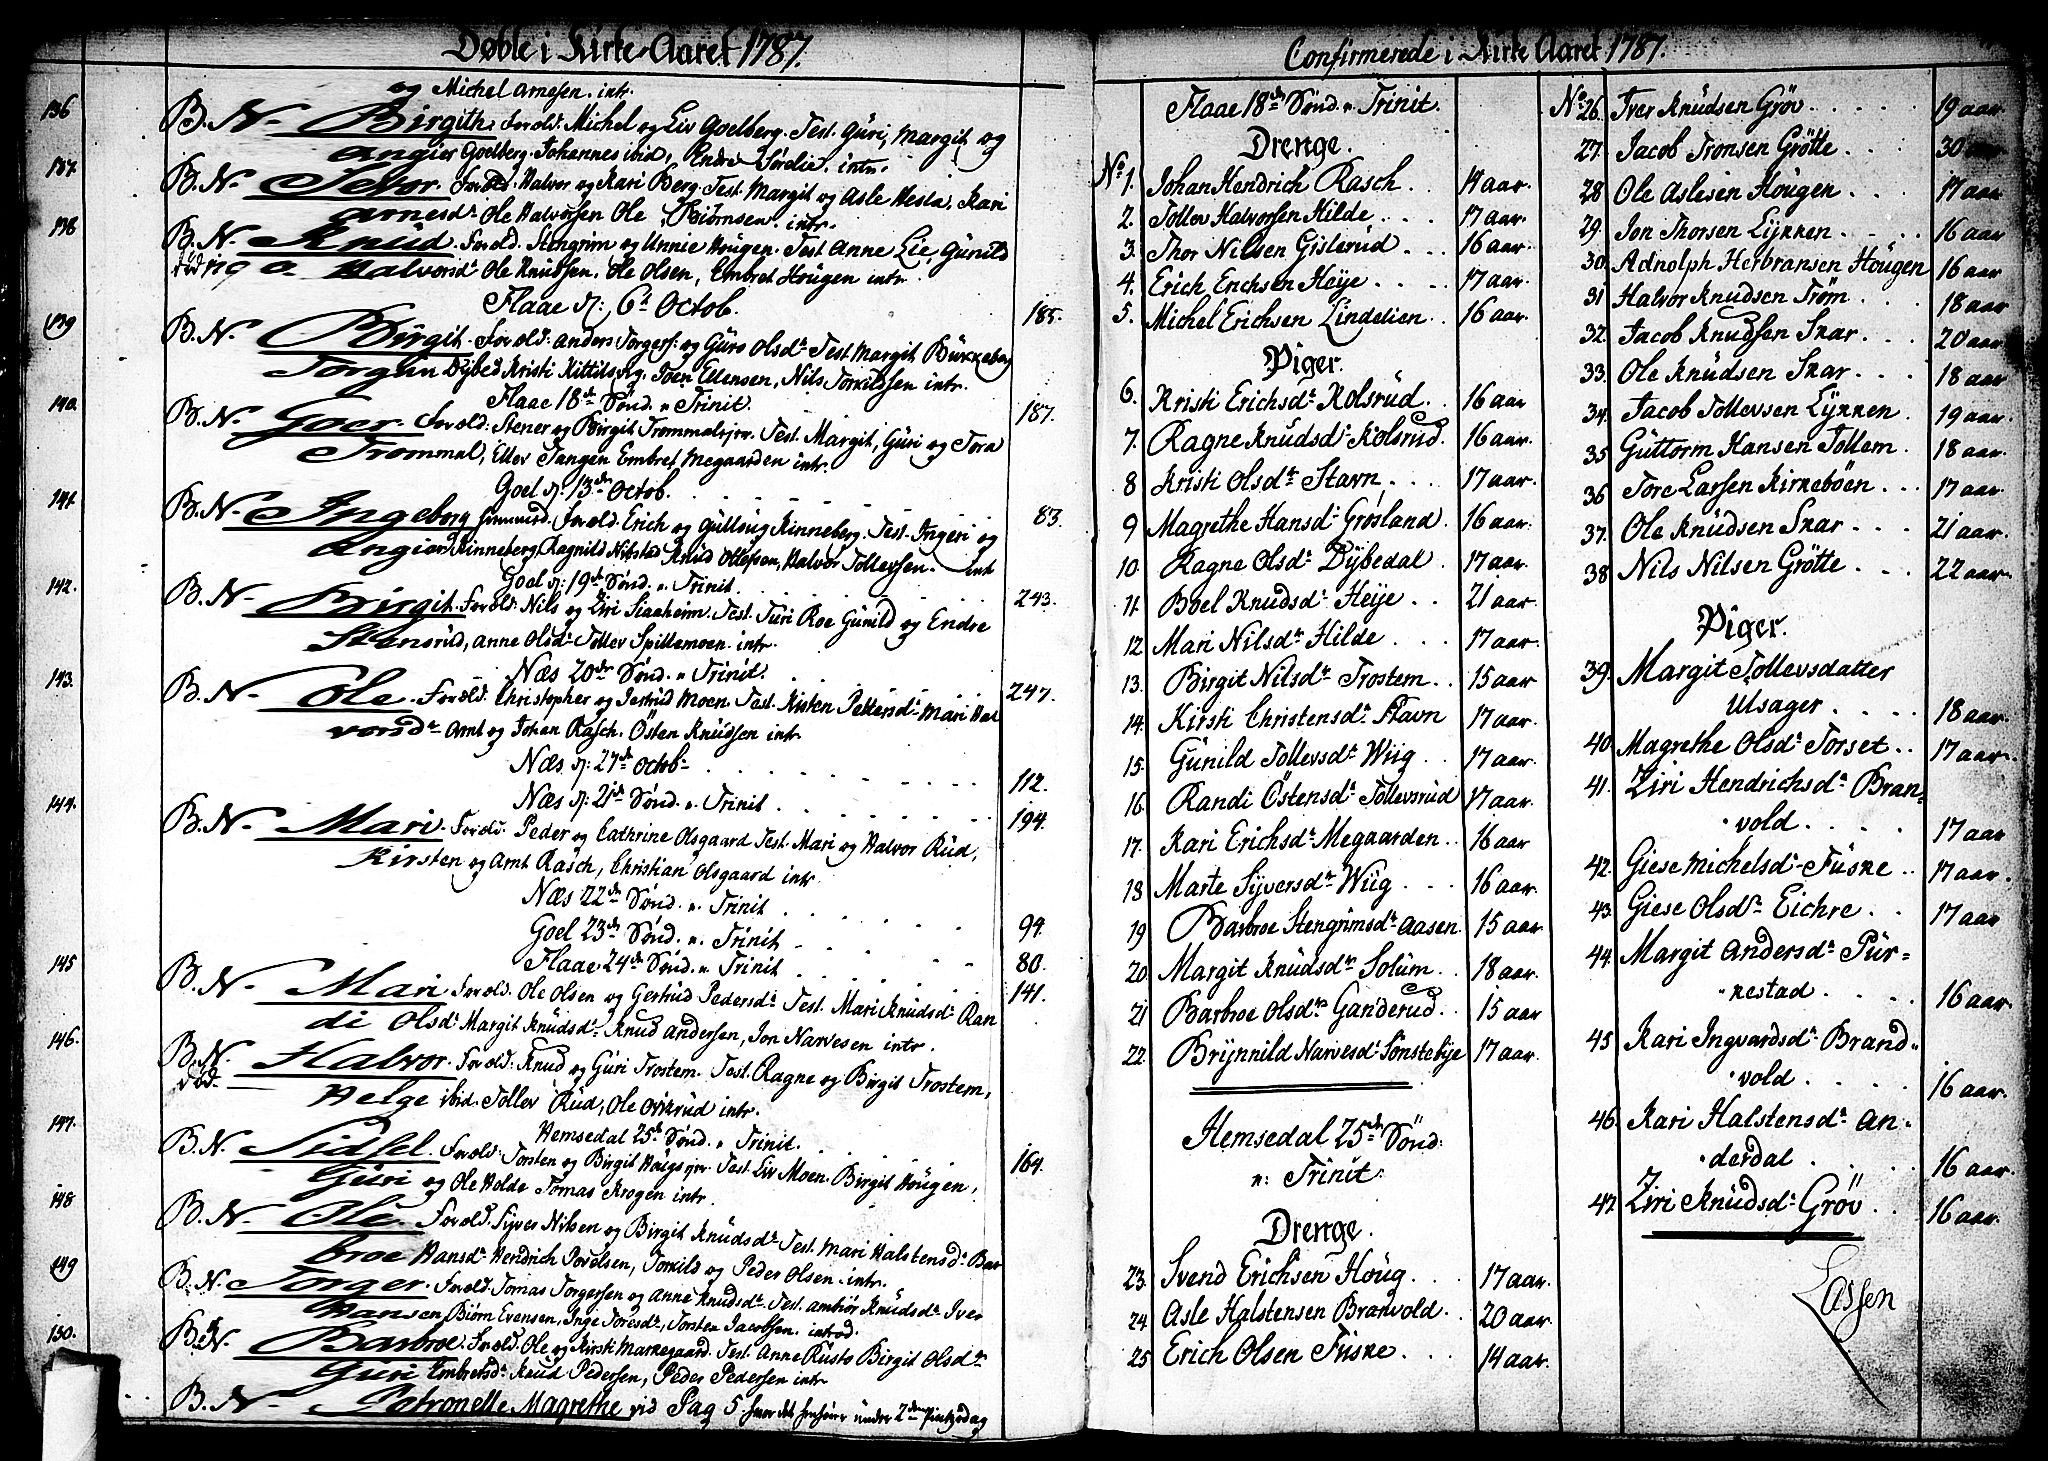 Døbte i Kirke Aaret 1787.
og Michel Arnesen. intr.
136 B. N. Birgith. Foræld. Michel og Liv Goelberg. Test. Guri, Margit og
Angier Goelberg. Johannes ibid, Endre Sørelie. intr.
137. B. N. Sevor. Foræld. Halvor og Kari Berg. Test. Margit og Asle Hesla, Kari
Arnesdr Ole Halvorsen Ole Biörnsen. intr.
138 B. N. Knud. Foræld. Stengrim og Unnie Hougen. Test Anne Lie, Gunild
Halvorsdr Ole Knudsen. Ole Olsen, Embret Hougen intr
Flaae d: 6te Octob. 185.
139 B. N. Birgit. Foræld: Anders Torgers: og Guro Olsdr Test Margit Bükkeberg
Torgun Dybed Kristi Kittilsrg. Joen Ellensen, Nils Torkildsen intr.
Flaae 18de Sönd. n. Trinit. 187.
140. B. N. Goer. Foræld: Stener og Birgit Trommalsjor. Test. Margit, Guri og Tora
Trommal, Ellev Tangen Embret Megaarden intr.
Goel d: 13de Octob. 83.
141. B. N. Ingeborg Foræld. Erich og Gullaug Kinneberg. Test. Ingeri og
Angier Kinneberg, Ragnild Nibstad Knud Ollefsen, Halvor Tollevsen. intr
Goel d: 19de Sönd. n. Trinit. 243.
142. B. N. Birgit. Foræld: Nils og Ziri Siaaheim. Test. Turi Roe Gunild og Endre
Stensrud, Anne Olsdr Tollev Spillemoen. intr.
Næs 20de Sönd. n. Trinit. 247.
143. B. N. Ole. Foræld. Christopher og Jertrud Moen. Test. Kisten Pettersdr Mari Hal
vorsdr Arnt og Johan Rasch. Östen Knudsen intr
Næs d: 27de Octobr 112.
Næs d: 21de Sönd. n. Trinit 194.
144. B. N. Mari. Foræld. Peder og Cathrine Olsgaard Test. Mari og Halvor Rud,
Kirsten og Arnt Rasch, Christian Olsgaard intr
Næs 22de Sönd. n. Trinit
Goel 23de Sönd. n. Trinit 94.
Flaae 24de Sönd. n. Trinit 80.
141.
145 B. N. Mari Foræld. Ole Olsen og Gertrud Pedersdr Test. Mari Knudsdr Ran
di Olsdr Margit Knudsdr Knud Andersen, Jon Narvesen intr.
146. B. N. Halvor. Foræld: Knud og Guri Trostem. Test. Ragne og Birgit Trostem,
død. Helge ibid. Tollev Rud, Ole Orkrud intr.
Hemsedal 25de Sönd. n. Trinit. 164.
147. B. N. Sidsel. Foræld: Torsten og Birgit Hougsrjor. Test. Liv Moen. Birgit Hougen,
Guri og Ole Holde Tomas Krogen intr.
148 B. N. Ole. Foræld. Syver Nilsen og Birgit Knudsdr Test. Mari Halstensdr Bar
broe Hansdr Hendrich Povelsen, Torkild og Peder Olsen. intr.
149 B. N. Torger. Foræld. Tomas Torgersen og Anne Knudsdr Test. Ambiör Knudsdr Iver
Hansen, Biörn Evensen, Inge Toresdr, Torsten Jacobsen. introd.
150. B. N. Barbroe. Foræld. Ole og Kirsti Markegaard. Test. Anne Rusto Birgit Olsdr
Guri Embretsdr Knud Pedersen, Peder Pedersen intr
B. N. Petronelle Magrethe vid Pag 5. under 2den Pintzedag
Confirmerede i Kirke Aaret 1787.
Flaae 18de Sönd. n. Trinit.
Drenge.
No 1. Johan Hendrich Rasch. 14 aar.
2. Tollev Halvorsen Hilde 17 aar.
3. Thor Nilsen Gislerud 16 aar.
4. Erich Erichsen Heye 17 aar.
5. Michel Erichsen Lindelien 16 aar.
Piger.
6. Kristi Erichsdr Kolsrud 16 aar
7. Ragne Knudsdr Kolsrud. 16 aar.
8 Kristi Olsdr Stavn 17 aar.
9 Magrethe Hansdr Grosland. 16 aar.
10 Ragne Olsdr Dybedal 17 aar.
11. Boel Knudsdr Heye 21 aar.
12 Mari Nilsdr Hilde 17 aar.
13. Birgit Nilsdr Trostem 15 aar
14. Kirsti Christensdr Stavn 17 aar.
15. Gunild Tollevsdr Wiig 17 aar.
16. Randi Östensdr Tollevsrud 17 aar.
17. Kari Erichsdr Megaarden 16 aar
18 Marte Syversdr Wiig 16 aar.
19 Barbroe Stengrimsdr Aasen 15 aar
20 Margit Knudsdr Solum 18 aar.
21 Barbroe Olsdr Ganderud 15 aar
22. Brynnild Narvesdr Sönstebye 17 aar.
Hemsedal 25de Sönd:
n: Trinit:
Drenge.
23. Svend Erichsen Houg 17 aar.
24 Asle Halstensen Branvold 20 aar.
25 Erich Olsen Fuske 14 aar.
No 26. Iver Knudsen Gröv 19 aar
27. Jacob Tronsen Grötte 30 aar
28 Ole Aslesen Hougen 17 aar
29. Jon Thorsen Lykken 16 aar
30. Adnolph Herbransen Hougen 16 aar
31 Halvor Knudsen Tröm 18 aar
32. Jacob Knudsen Skar 20 aar
33. Ole Knudsen Skar 18 aar
34. Jacob Tollevsen Lykken 19 aar
35 Guttorm Hansen Tollem 18 aar.
36 Tore Larsen Kirkeböen 17 aar.
37. Ole Knudsen Skar 21 aar.
38 Nils Nilsen Grötte 22 aar.
Piger.
39. Margit Tollevsdatter
Ulsager 18 aar.
40. Magrethe Olsdr Torset 17 aar.
41. Ziri Hendrichsdr Bran=
vold 17 aar
42. Giese Michelsdr Fuske 17 aar.
43. Giese Olsdr Eichre 17 aar
44. Margit Andersdr Pur=
kestad 16 aar.
45 Kari Ingvardsdr Brand=
vold 16 aar.
46. Kari Halstensdr An=
derdal 16 aar.
47. Ziri Knudsdr Gröv 16 aar.
Lassen